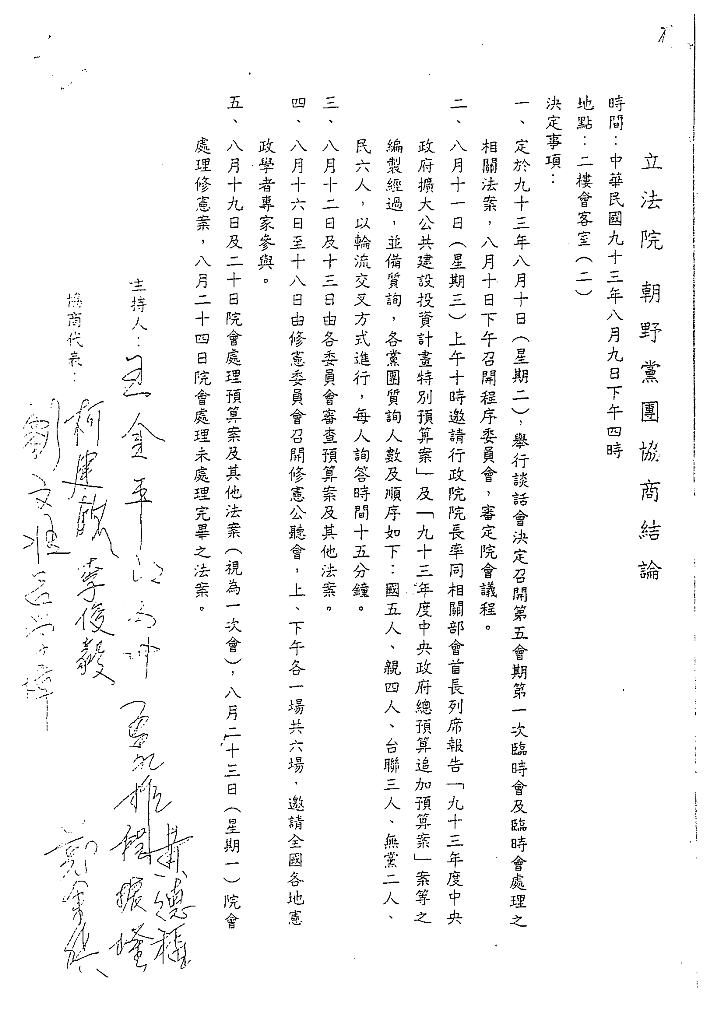 立法院朝野黨團協商結論
時間：中華民國九十三年八月九日下午四時
地點：二樓會客室（二）
決定事項：
一、定於九十三年八月十日（星期二），舉行談話會決定召開第五會期第一次臨時會及臨時會處理之
相關法案，八月十日下午召開程序委員會，審定院會議程。
二、八月十一日（星期三）上午十時邀請行政院院長率同相關部會首長列席報告「九十三年度中央
政府擴大公共建設投資計畫特別預算案」及「九十三年度中央政府總預算追加預算案」案等之
編製經過，並備質詢，各黨團質詢人數及順序如下：國五人、親四人、台聯三人、無黨二人、
民六人，以輪流交叉方式進行，每人詢答時間十五分鐘。
三、八月十二日及十三日由各委員會審查預算案及其他法案。
四、八月十六日至十八日由修憲委員會召開修憲公聽會，上、下午各一場共六場，邀請全國各地憲
政學者專家參與。
五、八月十九日及二十日院會處理預算案及其他法案（視為一次會），八月二十三日（星期一）院會
處理修憲案，八月二十四日院會處理未處理完畢之法案。
主持人：王金平
協商代表：
柯建銘 李俊毅
劉文雄
黃德福